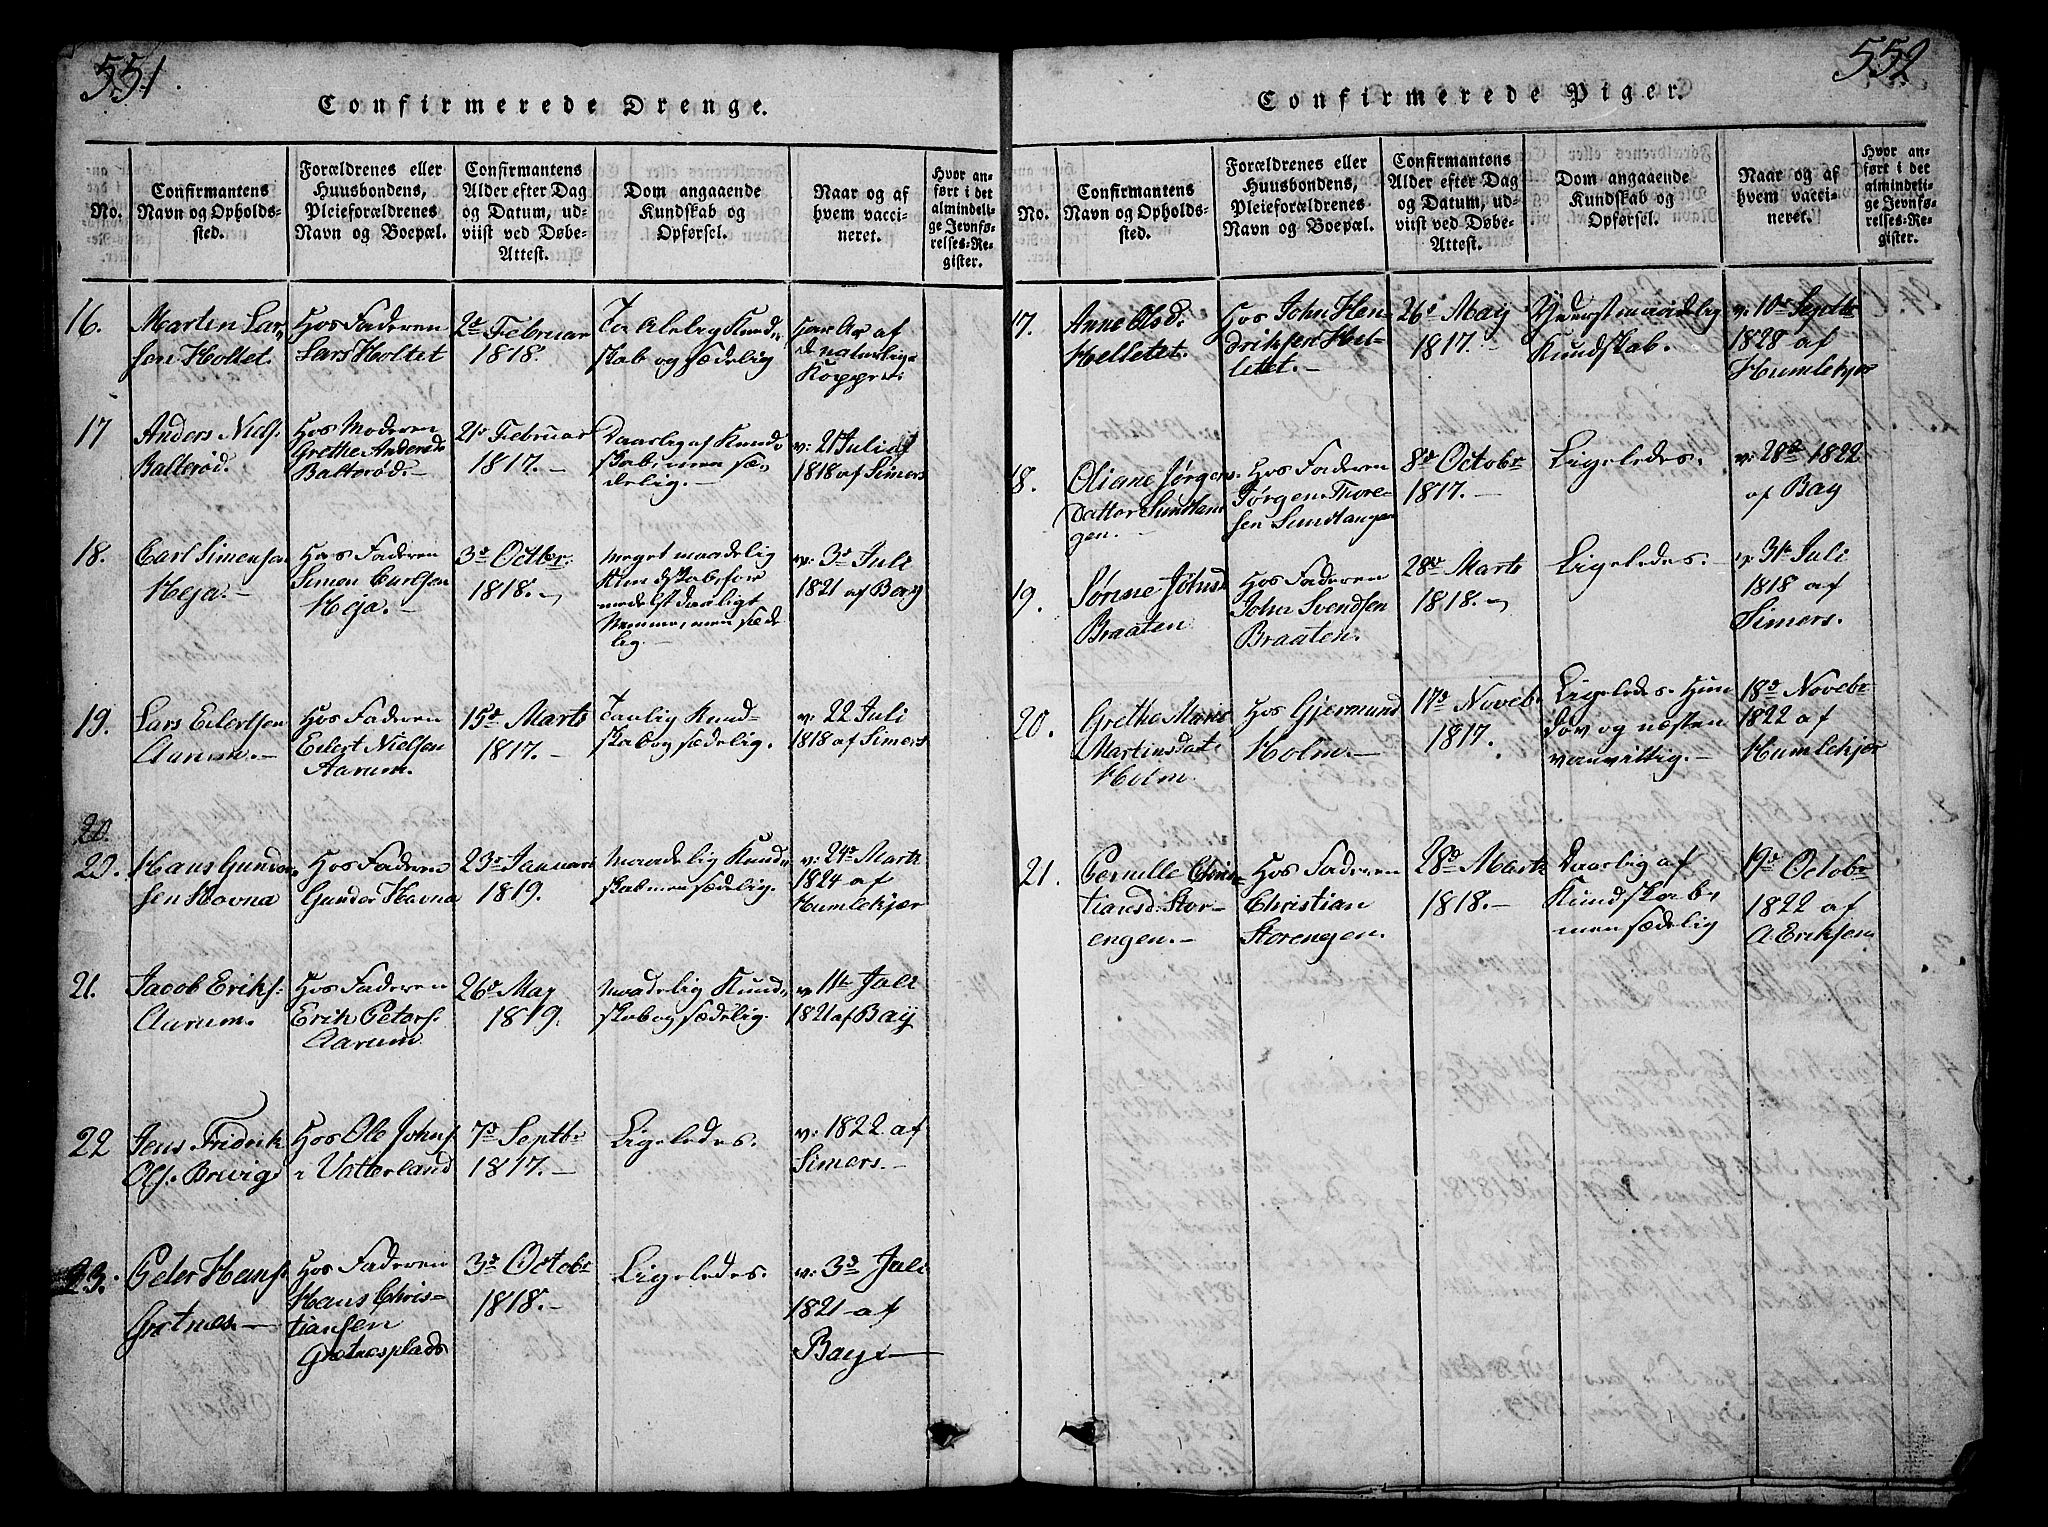 551
Confirmerede Drenge.
No.
Confirmantens
Navn og Opholds-
sted.
Forældrenes eller
Huusbondens,
Pleieforældrenes
Navn og Boepæl.
Confirmantens
Alder efter Dag
og Datum, ud-
viist ved Døbe-
Attest.
Dom angaaende
Kundskab og
Opførsel.
Naar og af
hvem vacci-
neret.
Hvor an-
ført i det
almindeli-
ge Jevnfø-
relses-Re-
gister.
16.
Martin Lar-
sen Holtet.
Hos Faderen
Lars Holtet
2de Februar
1818.
Kund-
skab og sædelig
af
de naturlige
Kopper.
17
Anders Niels.
Balterød.
Hos Moderen
Grethe Andersd.
Balterød.
21de Februar
1817. –
Daarlig af Kund-
skab, men sæ-
delig. –
v: 21 Juli af
1818 af Simers
18.
Carl Simensen
Heja. –
Hos Faderen
Simon Carlsen
Heja. –
3d Octbr
1818.
Meget maadelig
Kundskab, for
medelst daarligt
Nemme, men sæde
lig. –
v: 3d Juli
1821 af Bay
19.
Lars Eilertsen
Aarum. –
Hos Faderen
Eilert Nielsen
Aarum.
15d Marts
1817. –
Taalig Kund-
skab og sædelig.
v: 22 Juli
1818 af Simers
20.
20.
Hans Gunder-
sen Hovna
Hos Faderen
Gunder Havna
23d Januari
1819.
Maadelig Kund-
skab men sædelig.
v: 24d Marts
1824 af
Humlekjær
21.
Jacob Eriks:
Aarum.
Hos Faderen
Erik Peters:
Aarum
26d May
1819.
Maadelig Kund-
skab og sædelig.
v: 11te Juli
1821 af Bay
22
Jens Fridrik
Ols: Brevig
Hos Ole Johns:
i Vatterland
7d Septbr
1817. –
Ligeledes.
v: 1822 af
Simers. –
23.
Peder Hans:
Grotnes. –
Hos Faderen
Hans Chris-
tiansen
Grotnesplads
3d Octobr
1818. –
Ligeledes.
v: 3d Juli
1821 af
Bay. –
552
Confirmerede Piger.
No.
Confirmantens
Navn og Opholds-
sted.
Forældrenes eller
Huusbondens,
Pleieforældrenes
Navn og Boepæl.
Confirmantens
Alder efter Dag
og Datum, ud-
viist ved Døbe-
Attest.
Dom angaaende
Kundskab og
Opførsel.
Naar og af
hvem vacci-
neret.
Hvor an-
ført i det
almindeli-
ge Jevnfø-
relses-Re-
gister.
17.
Anne Olsd:
Helletet.
Hos John Hen-
driksen Hel-
letet. –
26d May
1817. –
Yderst maadelig
Kundskab.
v: 10d Septbr
1828 af
Humlekjær
18.
Oliane Jørgens-
datter Sundtan-
gen. –
Hos Faderen
Jørgen Thore-
sen Sundtangen
8d Octobr
1817. –
Ligeledes.
v: 28de 1822
af Bay
19.
Sørine Johnsd:
Braaten
Hos Faderen
John Svendsen
Braaten.
28de Marts
1818.
Ligeledes. –
v: 31te Juli
1818 af
Simers.
20.
Grethe Marie
Martinsdat:
Holm
Hos Gjermund
Holm. –
17d Novebr
1817.
Ligeledes. Hun
dov og næsten
vanvittig. –
18d Novebr
1822 af
Humlekjær
21.
Pernille Chris-
tiansd: Stor-
engen. –
Hos Faderen
Christian
Storengen.
28d Marts
1818. –
Daarlig af
Kundskab,
men sædelig
19d Octobr
1822 af
A. Eriksen